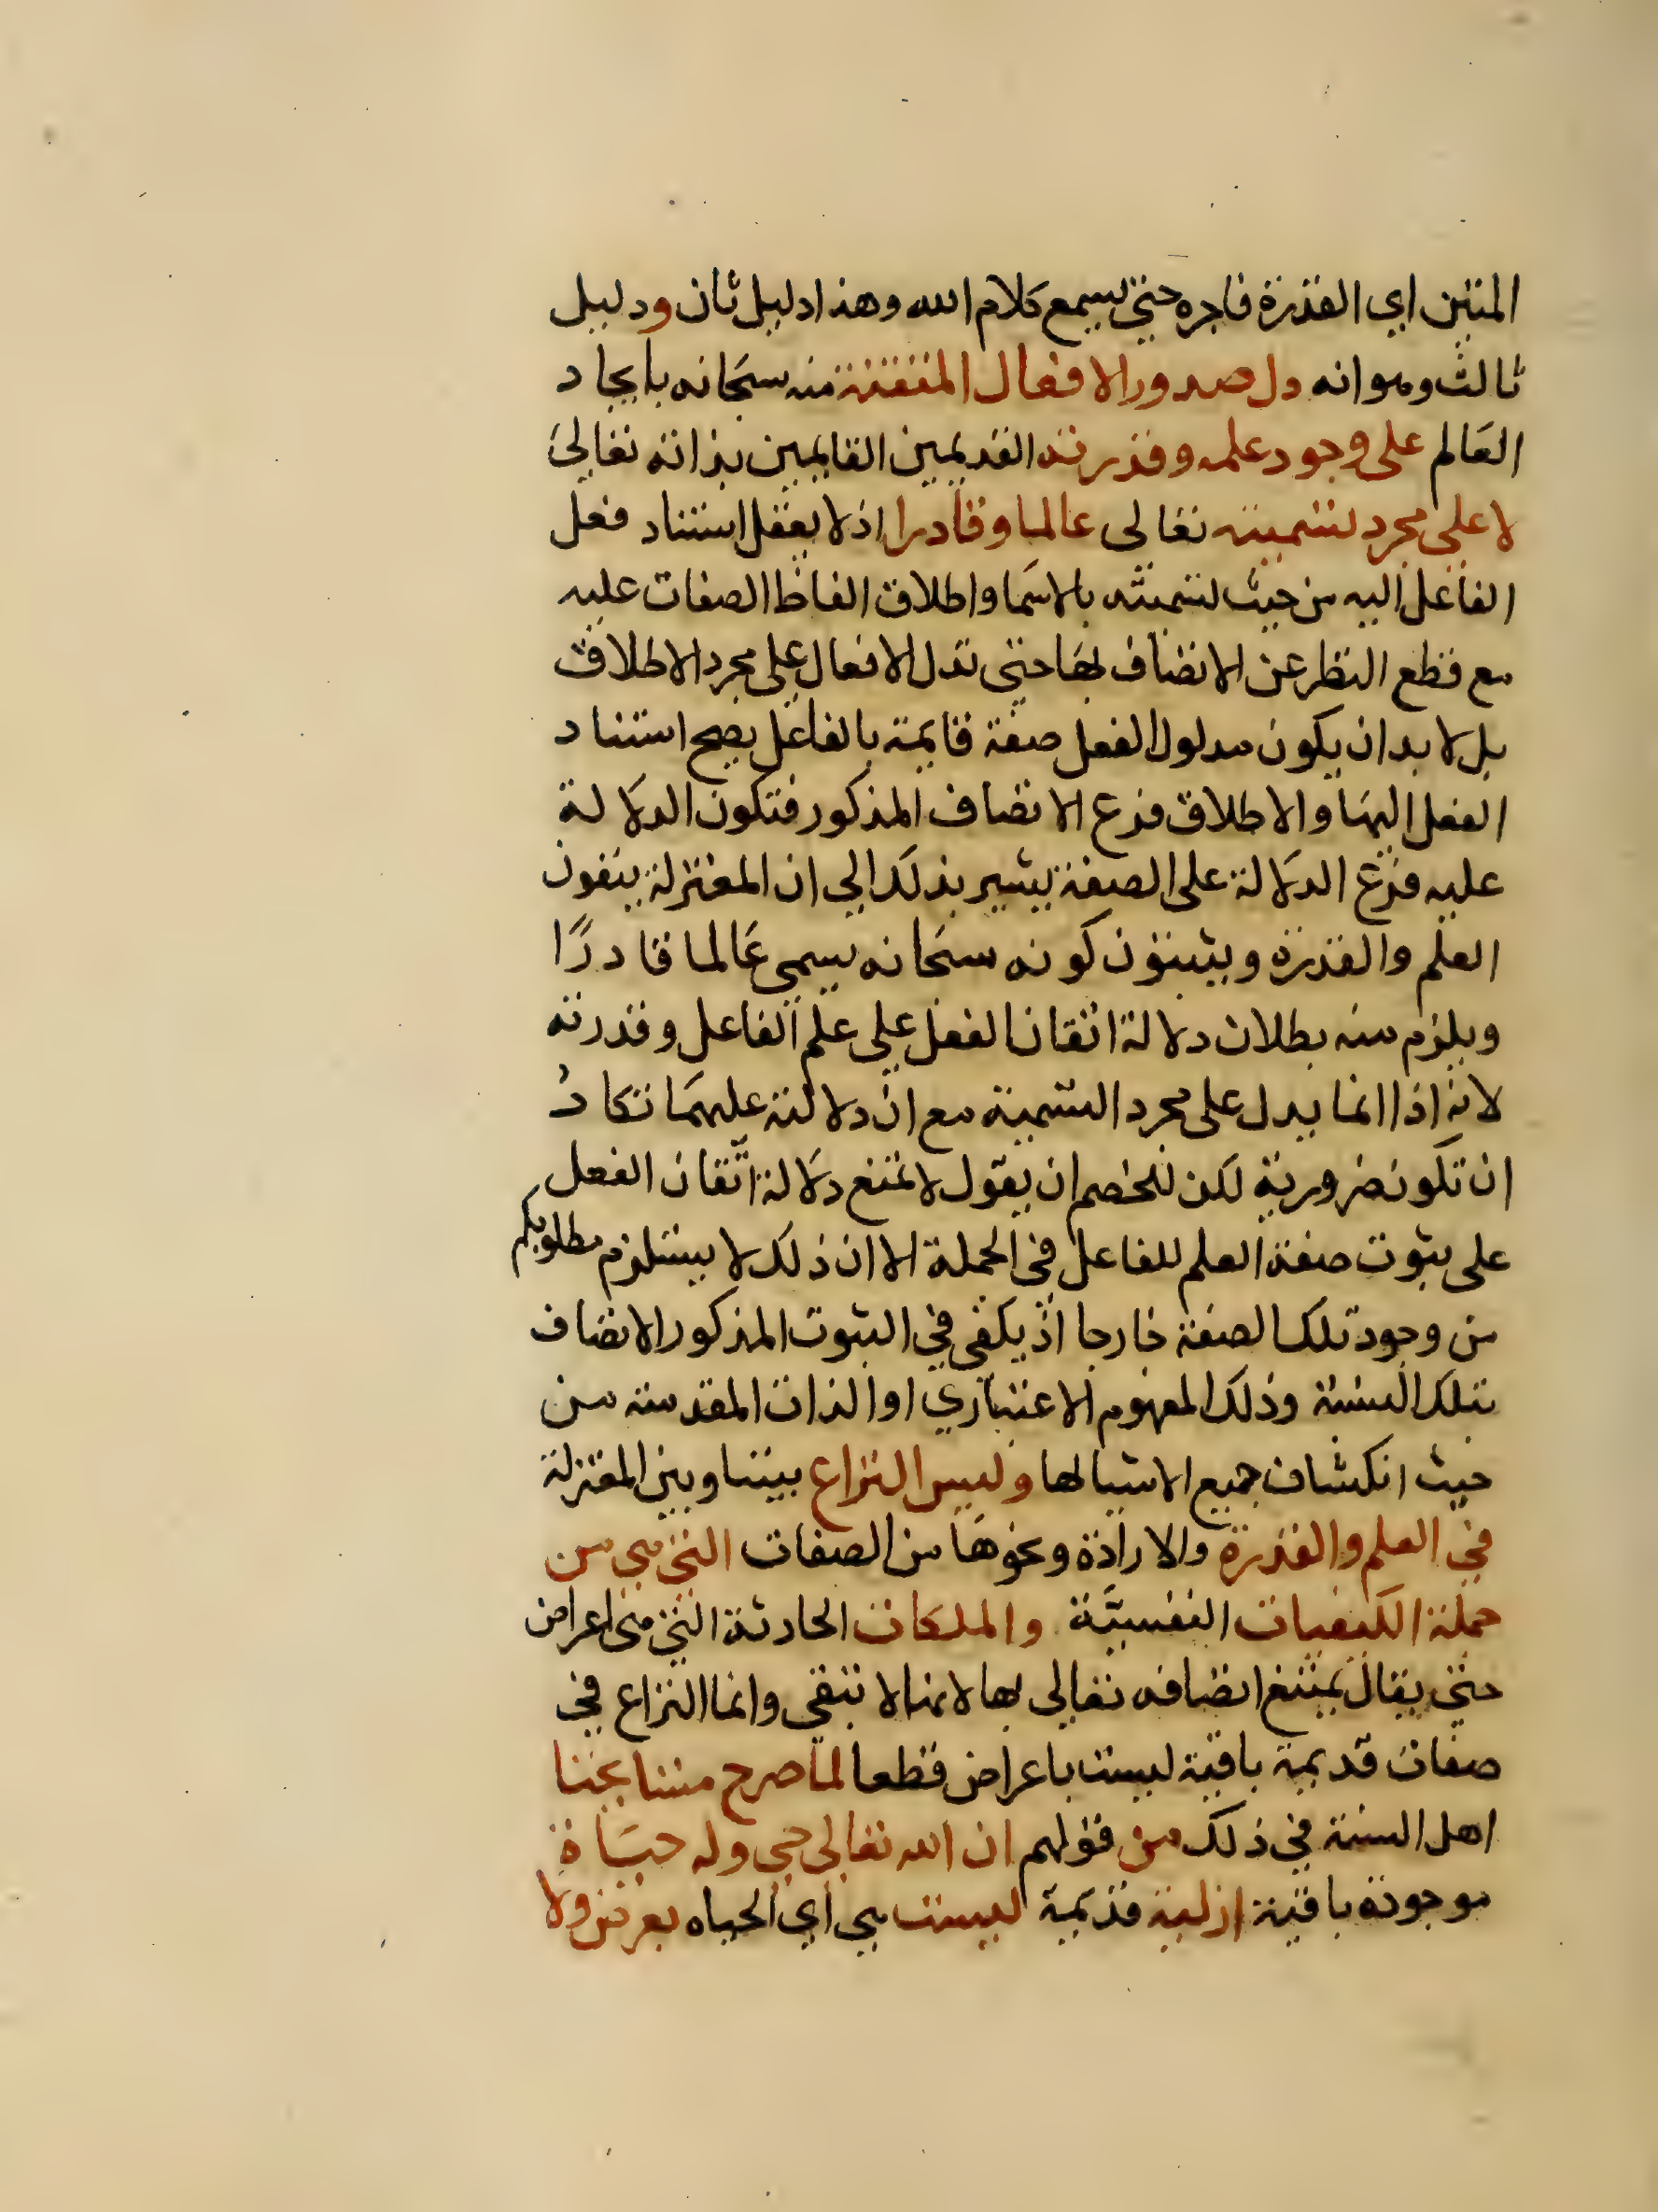 المتين اي القدرة فاجره حتى يسمع كلام الله وهذا دليل ثان ودليل
ثالث وهو انه دل صدور الافعال المتقنة منه سبحانه بايجاد
العالم على وجود علمه وقدرته القديمين القايمين بذاته تعالى
لا على مجرد تسميته تعالى عالما وقادرا اذ لا يعقل استناد فعل
الفاعل اليه من حيث تسميته بالاسما واطلاق الفاظ الصفات عليه
مع قطع النظر عن الاتصاف بها حتى تدل الافعال على مجرد الاطلاق
بل لا بد ان يكون مدلول الفعل صفة قايمة بالفاعل يصح استناد
الفعل اليها والاطلاق فرع الاتصاف المذكور فتكون الدلالة
عليه فرع الدلالة على الصفة يشير بذلك الي ان المعتزلة ينفون
العلم والقدرة ويثبتون كونه سبحانه يسمى عالما قادرًا
ويلزم منه بطلان دلالة اتقان الفعل على علم الفاعل وقدرته
لانه اذا انما يدل على مجرد التسمية مع ان دلالته عليهما تكادُ
ان تكون ضرورية لكن للخصم ان يقول لا تمتنع دلالة اتّقان الفعل
على ثبوت صفة العلم للفاعل في الجملة الا ان ذلك لا يستلزم مطلوبكم
من وجود تلك الصفة خارجا اذ يكفي في الثبوت المذكور الاتصاف
بتلك النسبة وذلك المفهوم الاعتباري او الذات المقدسة من
حيث انكشاف جميع الاشيا لها وليس النزاع بيننا وبين المعتزلة
في العلم والقدرة والارادة ونحوها من الصفات التي هي من
جملة الكيفيات النفسيّة والملكات الحادثة التي هي اعراض
حتى يقال يمتنع اتصافه تعالى بها لانها لا تبقى وانما النزاع في
صفات قديمة باقية ليست باعراض قطعا لما صرح مشايخنا
اهل السنة في ذلك من قولهم ان الله تعالى حي وله حياة
موجودة باقية ازلية قديمة ليست هي اي الحياه بعرض ولا